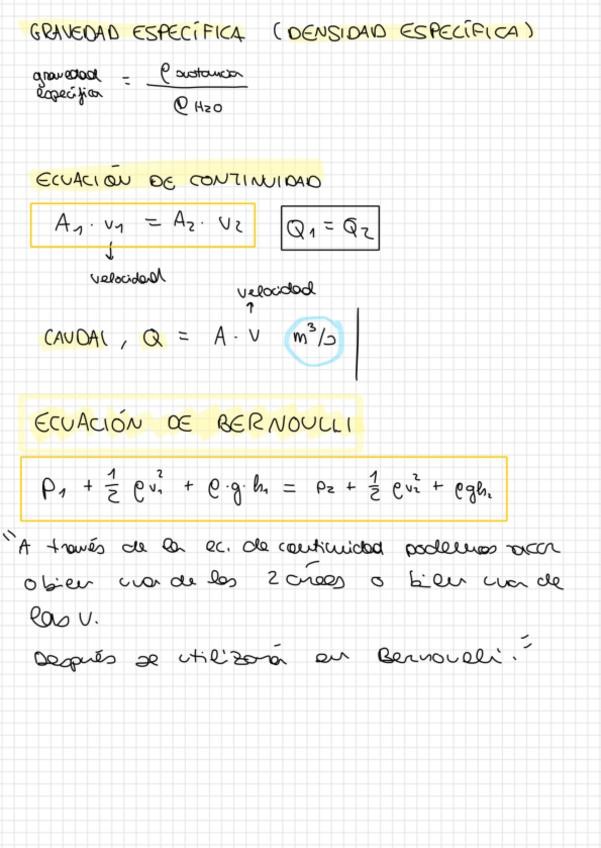 GRAVEDAD ESPECÍFICA (DENSIDAD ESPECÍFICA)
gravedad específica = ρ sustancia / ρ H2O
ECUACIÓN DE CONTINUIDAD
A₁ · v₁ = A₂ · v₂ Q₁ = Q₂
↓
velocidad
velocidad
↑
CAUDAL, Q = A · V m³/s
ECUACIÓN DE BERNOULLI
P₁ + 1/2 ρ v₁² + ρ·g·h₁ = P₂ + 1/2 ρ v₂² + ρgh₂
"A través de la ec. de continuidad podemos sacar
o bien una de las 2 áreas o bien una de
las v.
Después se utilizará en Bernoulli."